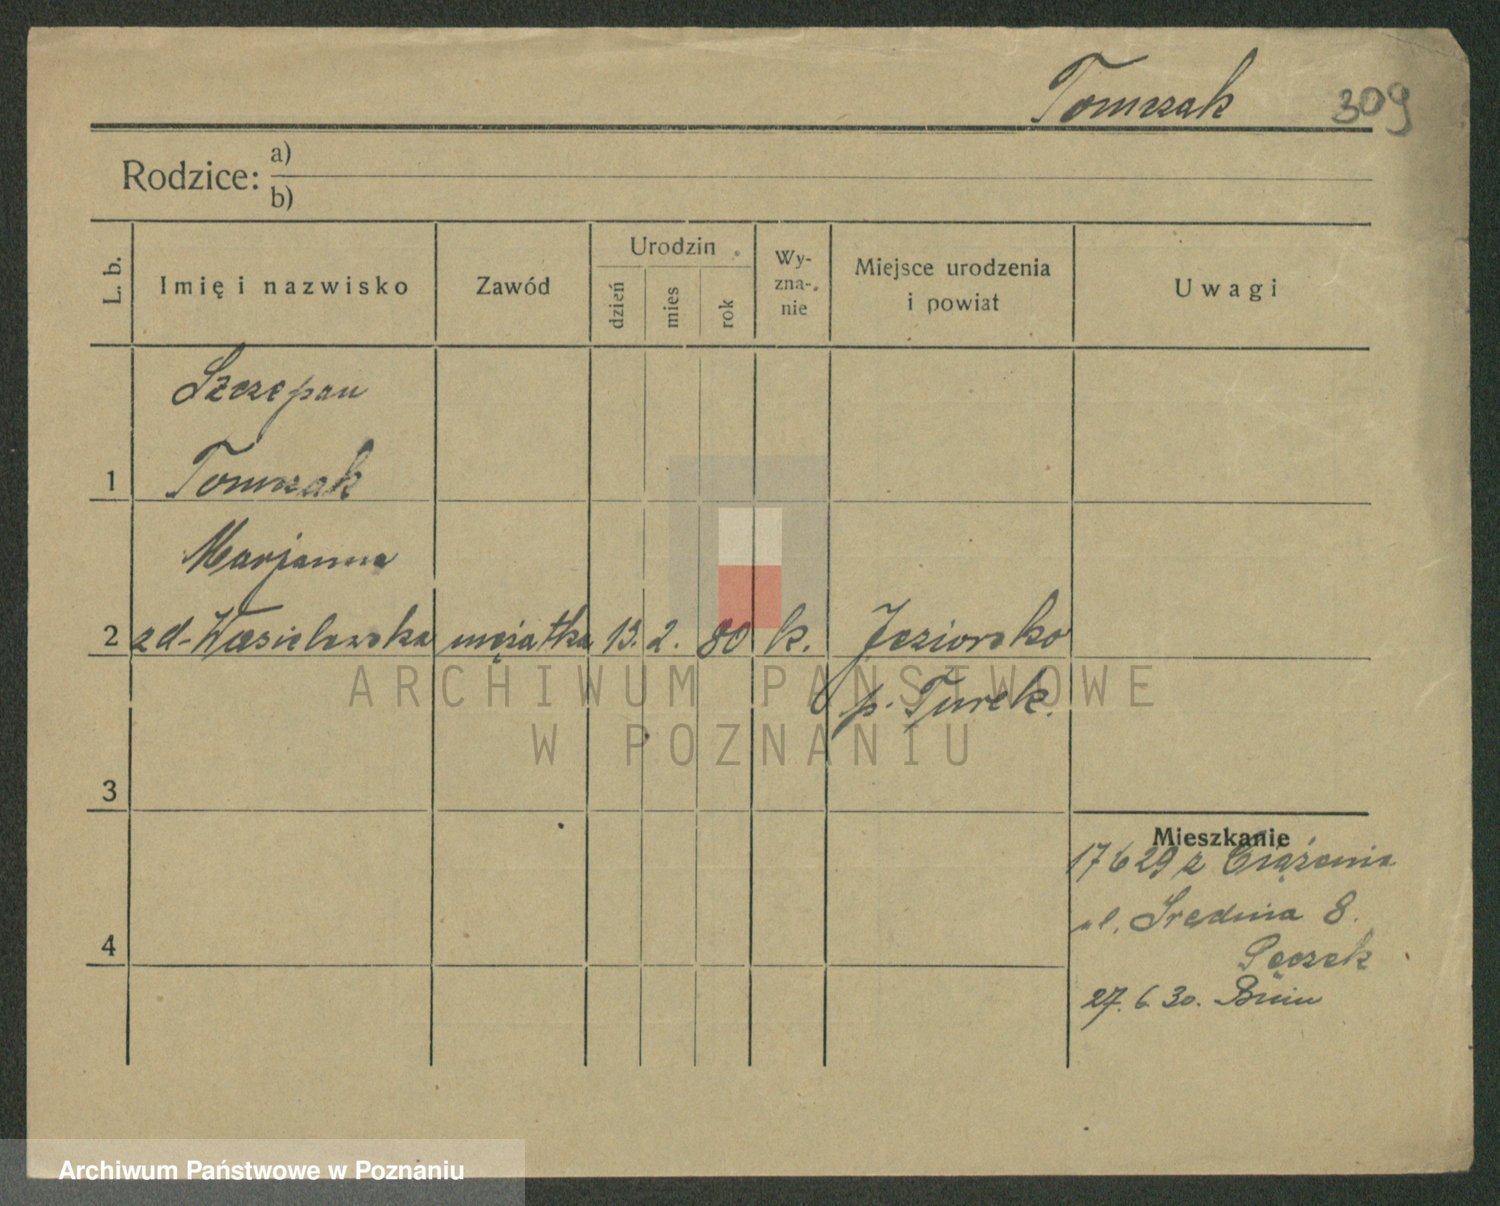 Tomczak 309
Rodzice: a)
b)
L. b.
Imię i nazwisko
Zawód
Urodzin
dzień
mies
rok
Wy-
zna-
nie
Miejsce urodzenia
i powiat
Uwagi
Szczepan
1 Tomczak
Marjanna
2 zd-Wasielewska mężatka 13. 2. 80 k. Jeziorsko
p. Turek.
3
4
Mieszkanie
17 6 29 z Ciążenia
ul. Średnia 8.
27. 6. 30.
ARCHIWUM PAŃSTWOWE
W POZNANIU
Archiwum Państwowe w Poznaniu